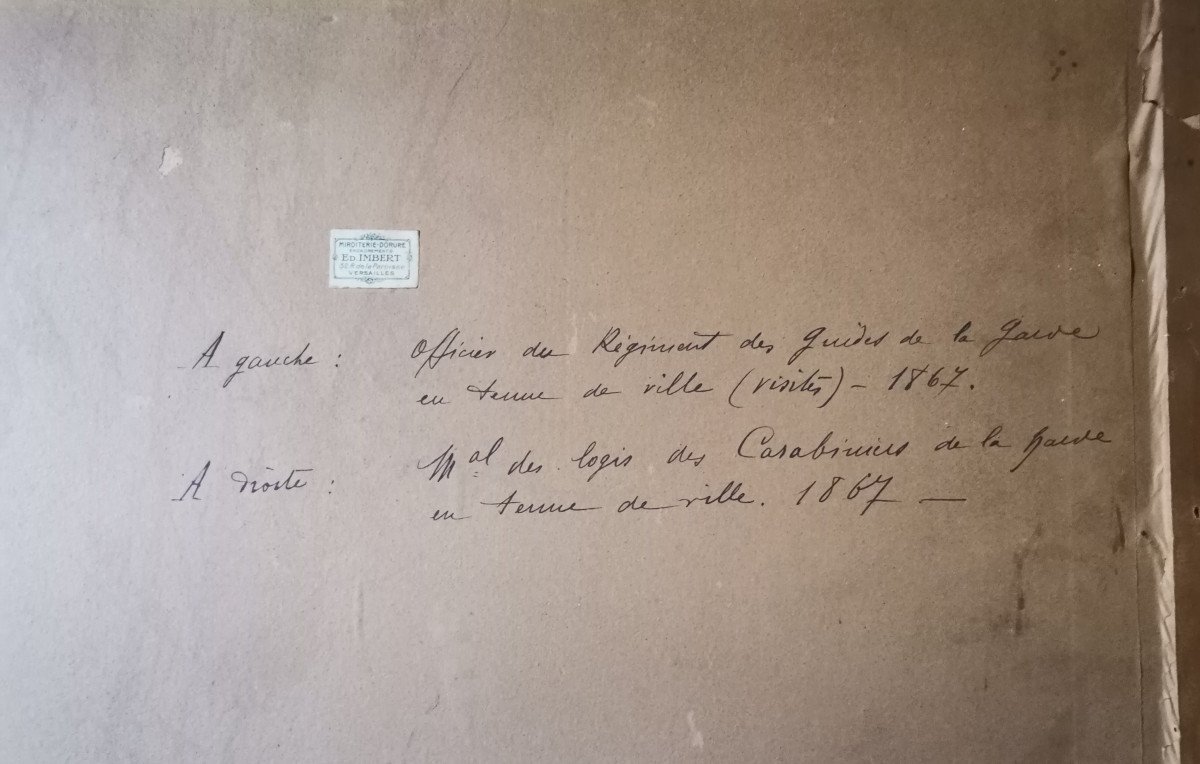 MIROITERIE-DORURE
ENCADREMENTS
ED. IMBERT
32 R. de la Paroisse
VERSAILLES
A gauche : Officier du Régiment des Guides de la Garde
en tenue de ville (visites) - 1867.
A droite : Mal des logis des Carabiniers de la Garde
en tenue de ville. 1867 —